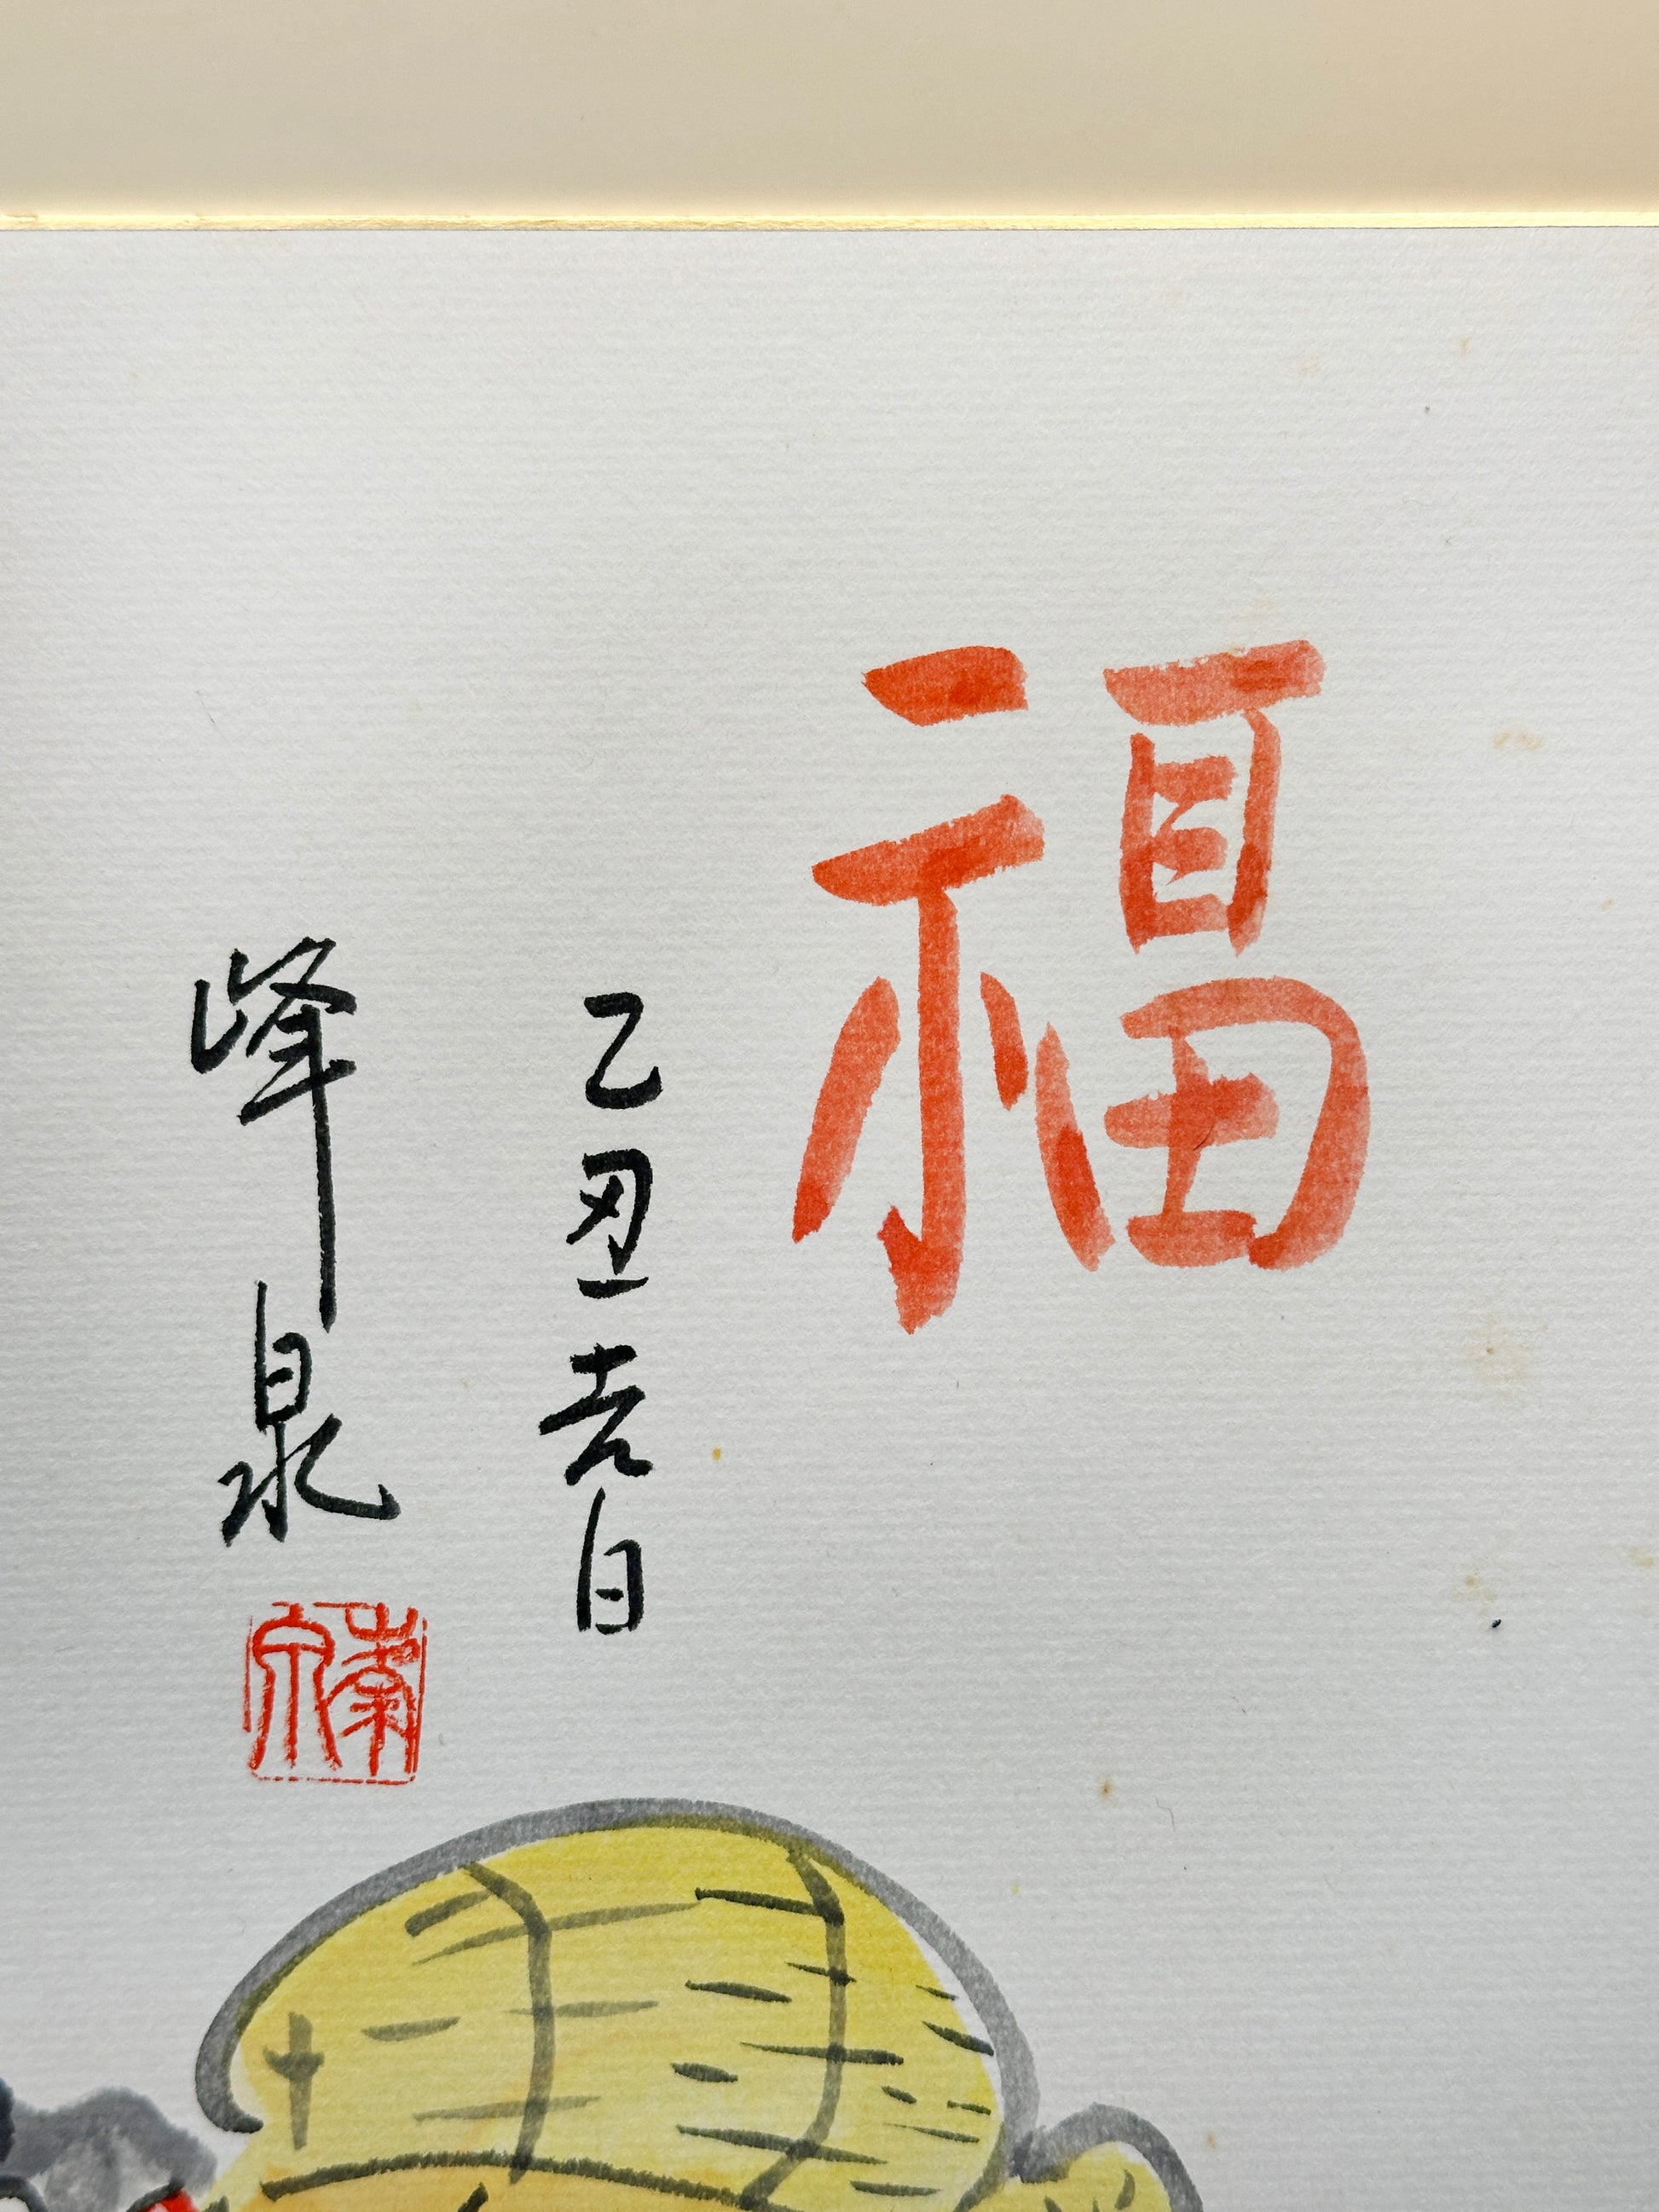 福
乙丑吉日
峰泉